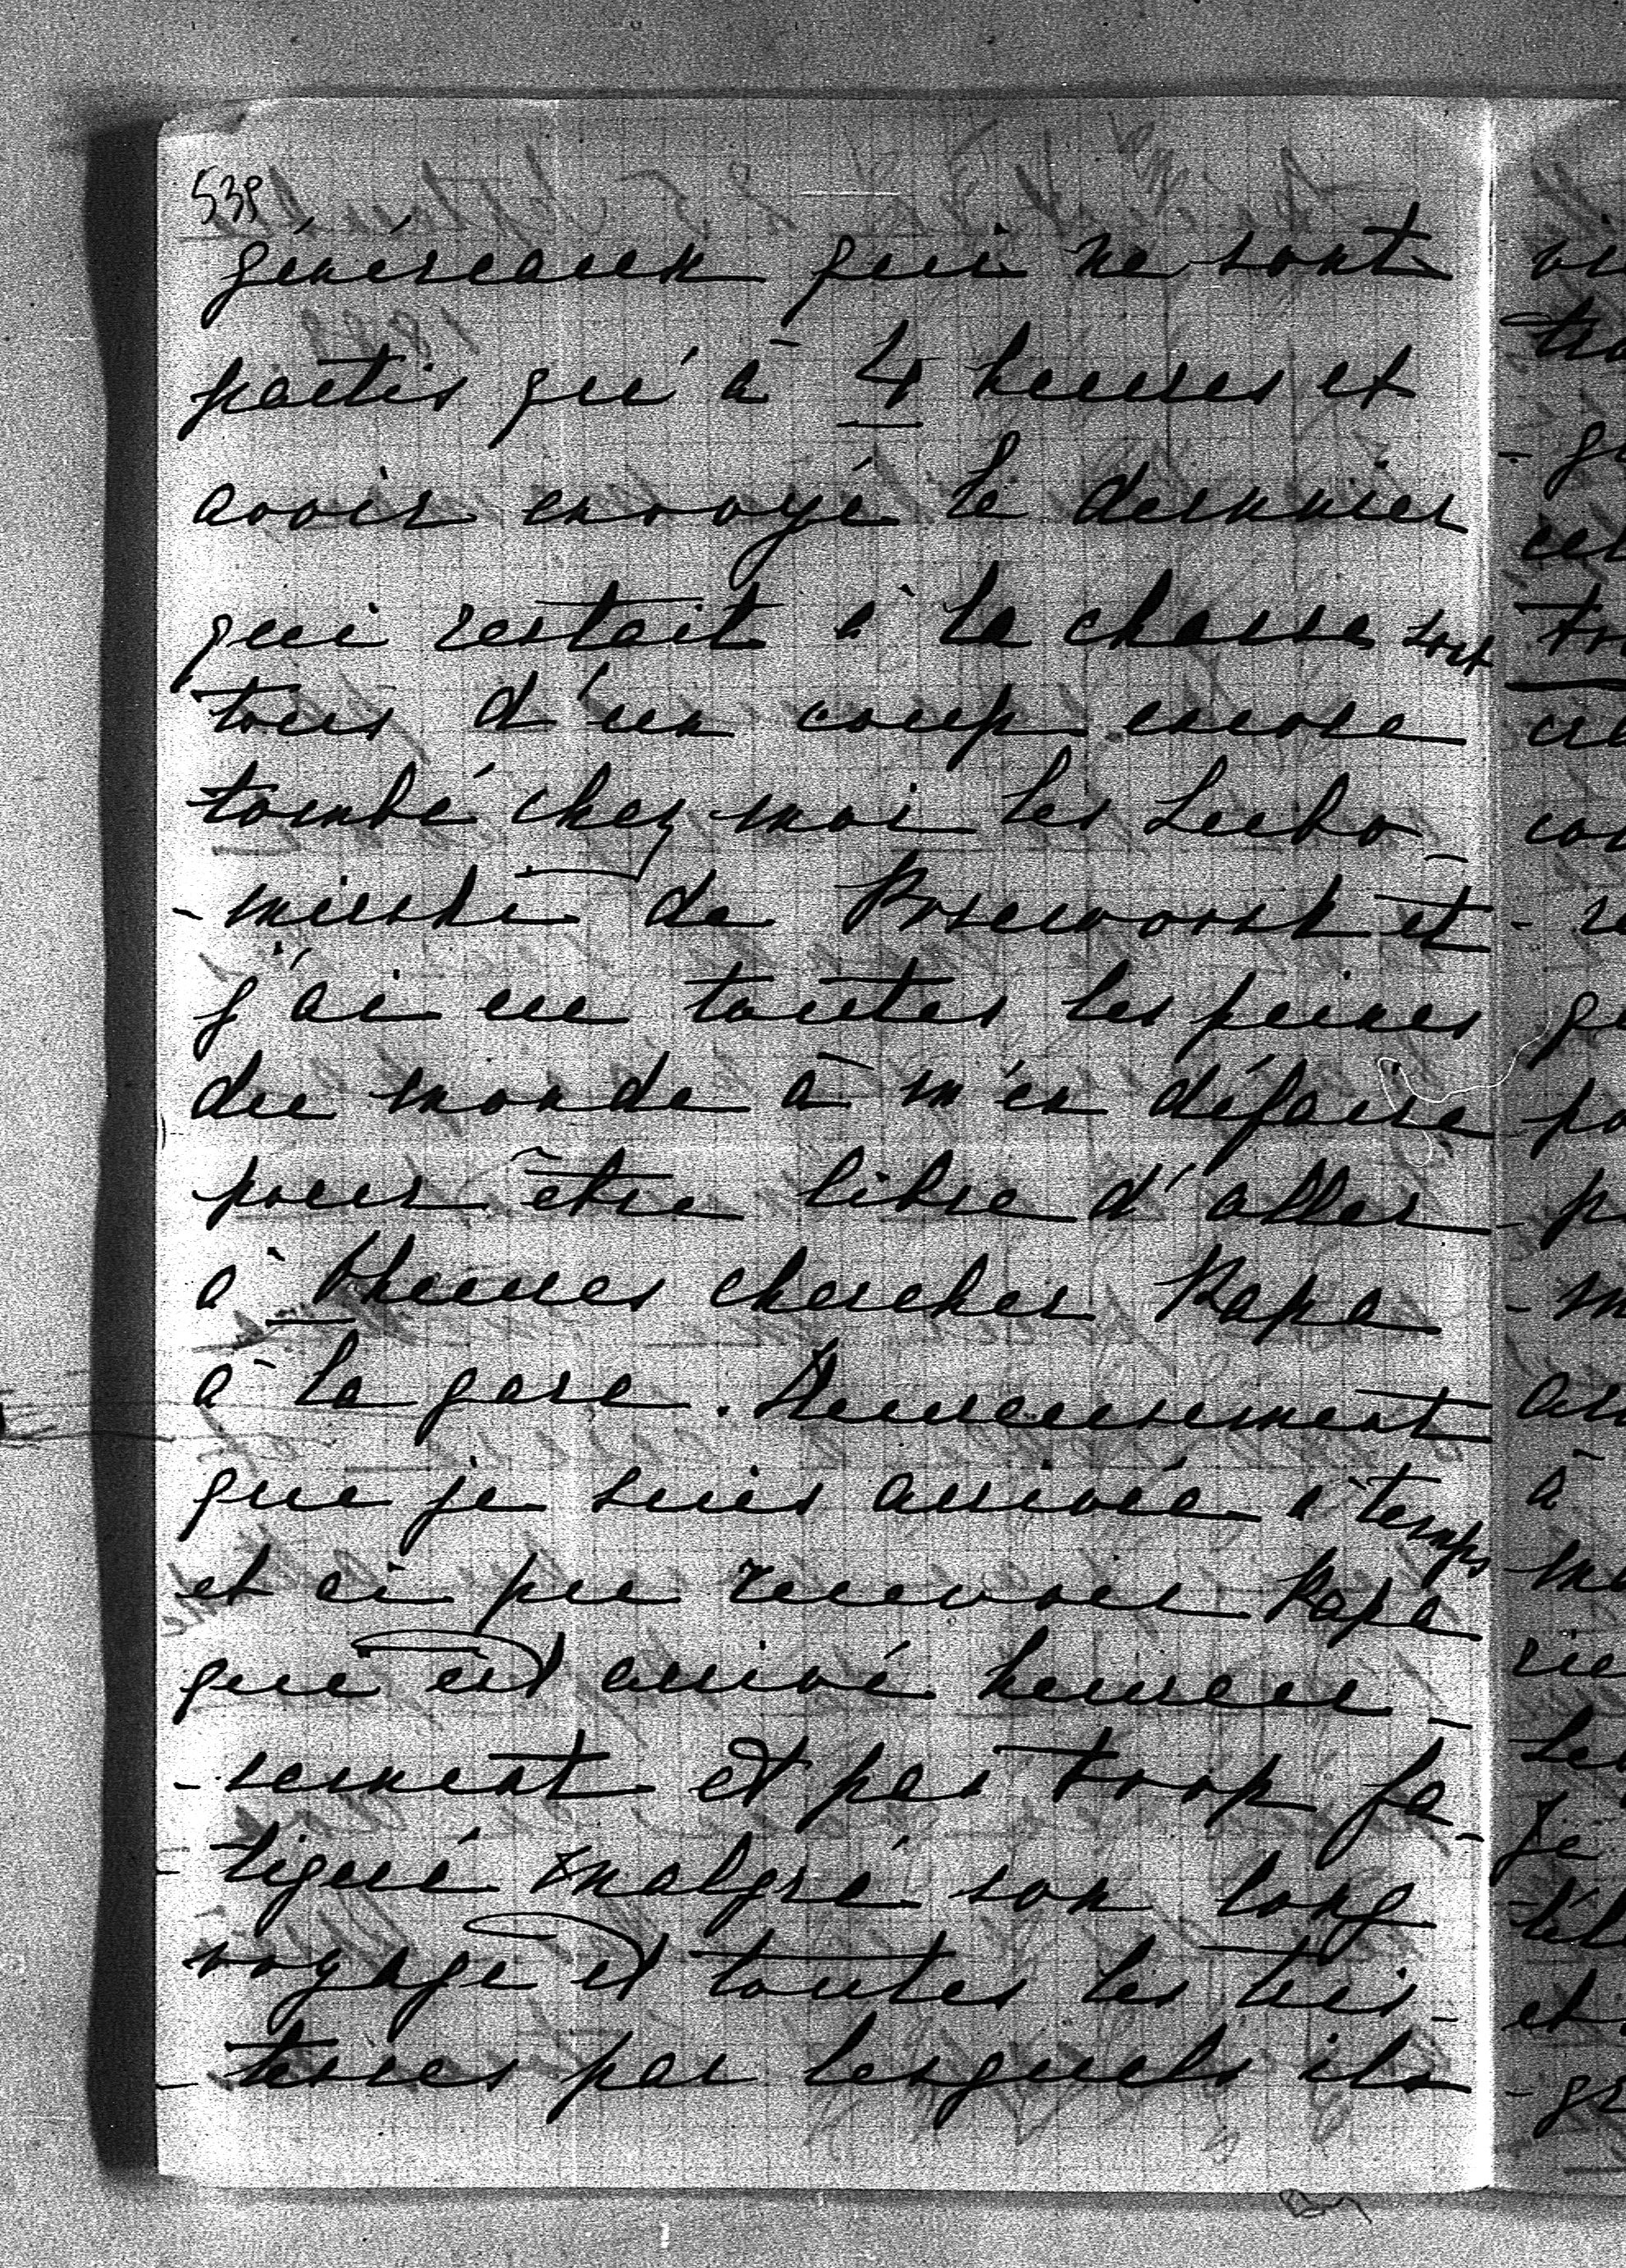 539
généreaux qui ne sont
partis qu'à 4 heures et
avoir envoyé le dernier
qui restait à la chasse sont
tous d'un coup encore
tombé chez moi les Lubo-
-mirski de Prseworsk et
j'ai eu toutes les peines
du monde à m'en défaire
pour être libre d'aller
à heures chercher Papa
à la gare. Heureusement
que je suis arrivée à temps
et ai pu recevoir Papa
qui est arrivé heureu-
-sement et pas trop fa-
-tigué malgré son long
voyage et toutes les
par lesquels ils